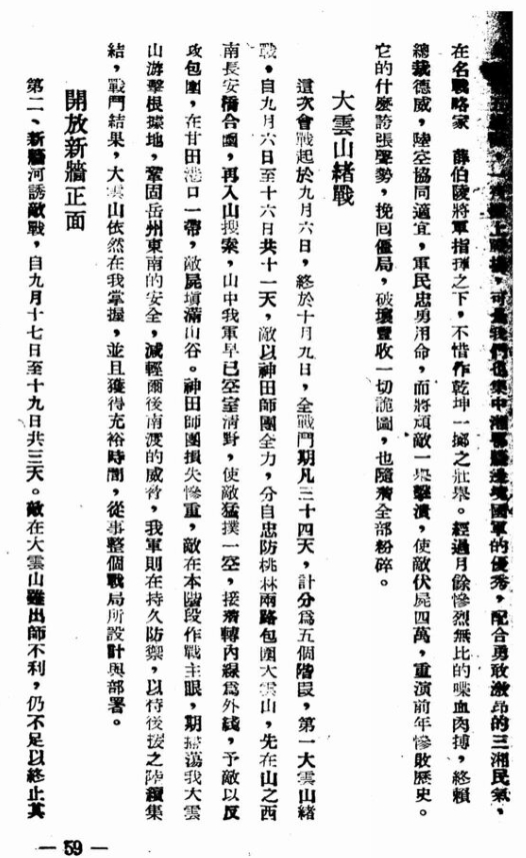 可是我們也集中湘鄂贛邊境國軍的優秀，配合勇敢激昂的三湘民氣，
在名戰略家　薛伯陵將軍指揮之下，不惜作乾坤一擲之壯舉。經過月餘慘烈無比的喋血肉搏，終賴
總裁德威，陸空協同適宜，軍民忠勇用命，而將頑敵一舉擊潰，使敵伏屍四萬，重演前年慘敗歷史。
它的什麼誇張聲勢，挽回僵局，破壞豐收一切詭圖，也隨着全部粉碎。
大雲山緒戰
這次會戰起於九月六日，終於十月九日，全戰鬥期凡三十四天，計分爲五個階段，第一大雲山緒
戰，自九月六日至十六日共十一天，敵以神田師團全力，分自忠防桃林兩路包圍大雲山，先在山之西
南長安橋合圍，再入山搜索，山中我軍早已空室清野，使敵猛撲一空，接着轉內線爲外綫，予敵以反
攻包圍，在甘田港口一帶，敵屍塡滿山谷。神田師團損失慘重，敵在本階段作戰主眼，期掃蕩我大雲
山游擊根據地，鞏固岳州東南的安全，減輕爾後南渡的威脅，我軍則在持久防禦，以待後援之陸續集
結，戰鬥結果，大雲山依然在我掌握，並且獲得充裕時間，從事整個戰局所設計與部署。
開放新牆正面
第二、新牆河誘敵戰，自九月十七日至十九日共三天。敵在大雲山雖出師不利，仍不足以終止其
— 59 —